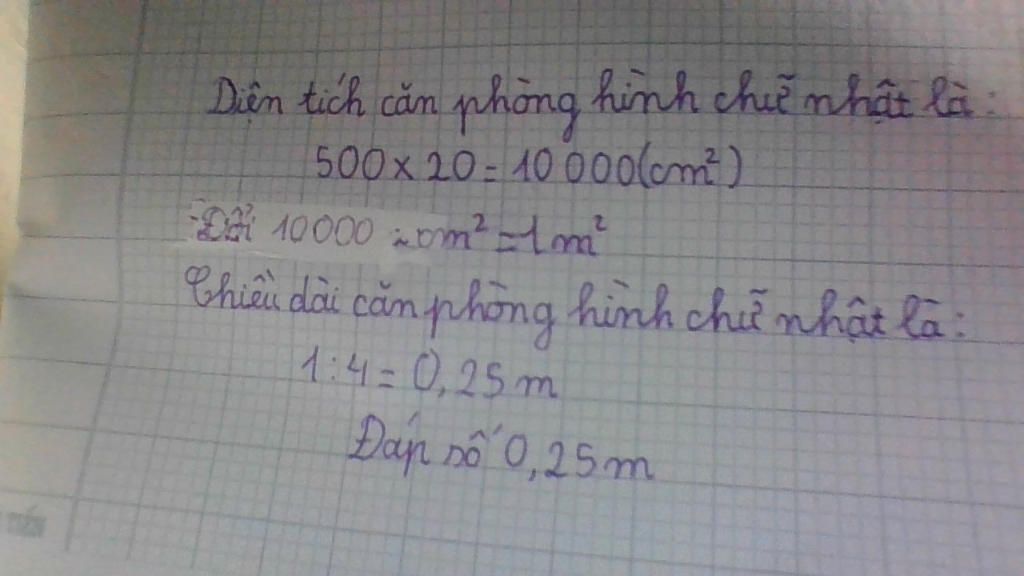 Diện tích căn phòng hình chữ nhật là:
500 x 20 = 10 000(cm²)
Đổi 10000 cm² = 1m²
Chiều dài căn phòng hình chữ nhật là:
1:4 = 0,25 m
Đáp số 0,25m